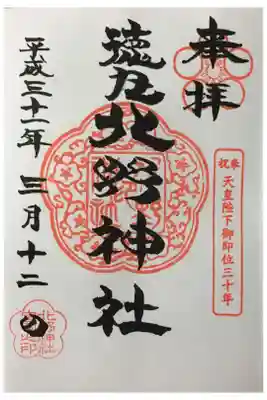 奉拝
奉祝
天皇陛下御即位三十年
徳丸北野神社
平成三十一年 三月十二日